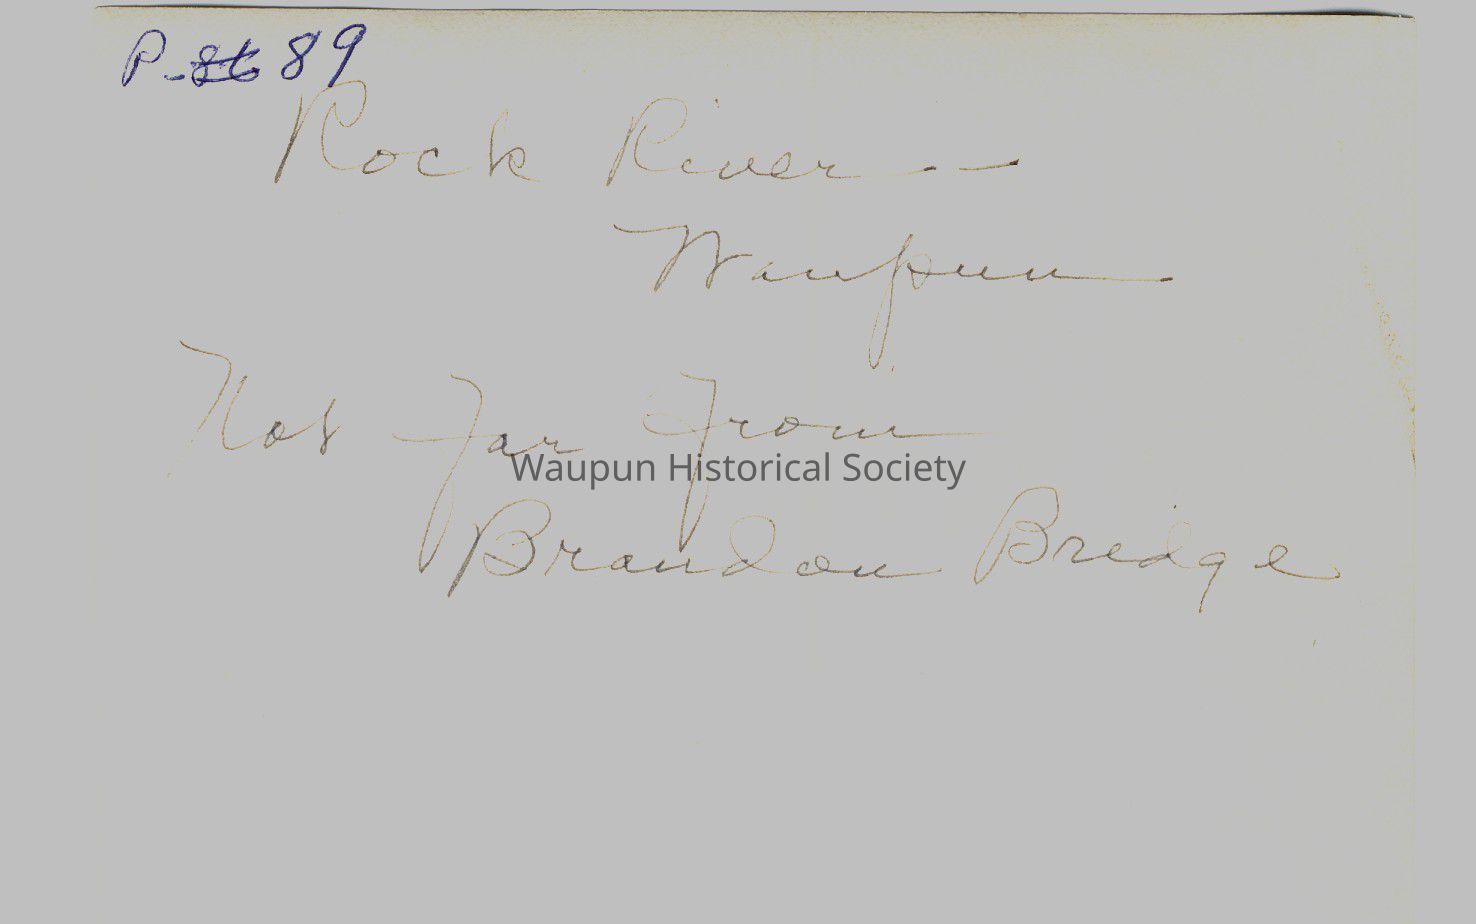 P-86 89
Rock River --
Waupun
Not Far From
Waupun Historical Society
Brandon Bridge